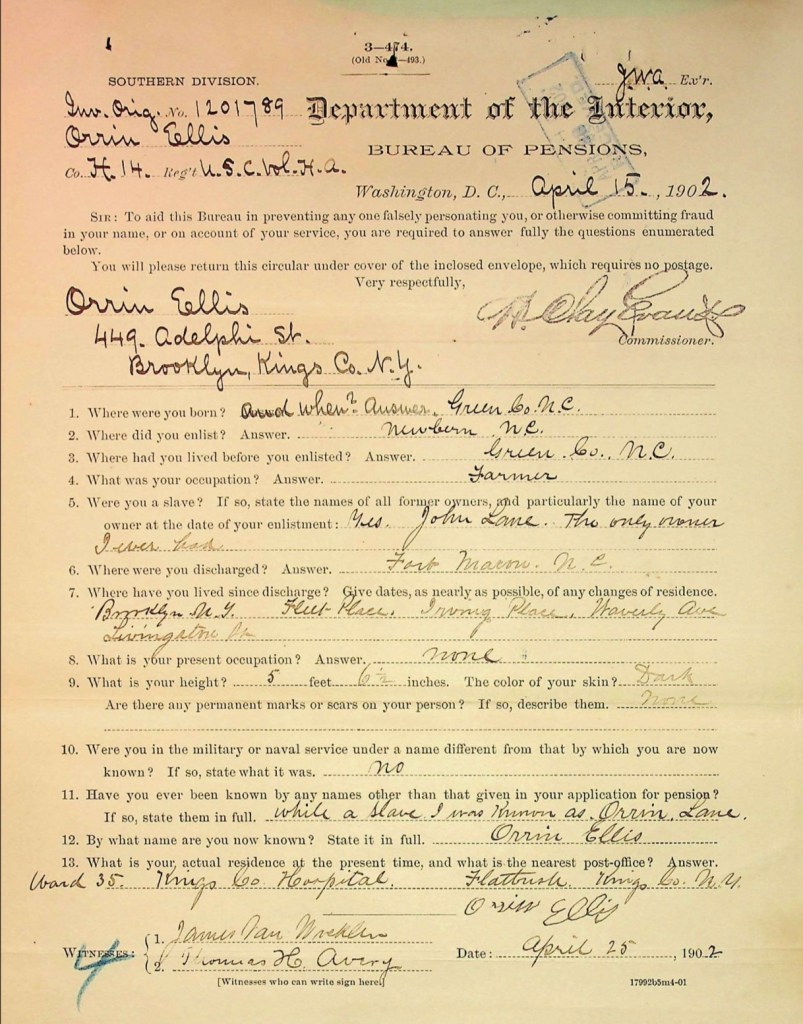 3—474.
(Old No. —493.)
SOUTHERN DIVISION.
J.W.a. Ex'r.
Inv. Orig. No. 1201789
Department of the Interior,
Orrin Ellis
BUREAU OF PENSIONS,
Co. H. 14. Reg't U.S.C. Vol. H.A.
Washington, D. C., April 15., 1902.
SIR: To aid this Bureau in preventing any one falsely personating you, or otherwise committing fraud
in your name, or on account of your service, you are required to answer fully the questions enumerated
below.
You will please return this circular under cover of the inclosed envelope, which requires no postage.
Very respectfully,
Orrin Ellis
H. Clay Evans
449. Adelphi St.
Commissioner.
Brooklyn, Kings Co. N.Y.
1. Where were you born? and when? Answer. Green Co. N.C.
2. Where did you enlist? Answer. Newbern N.C.
3. Where had you lived before you enlisted? Answer. Green. Co., N.C.
4. What was your occupation? Answer. Farmer
5. Were you a slave? If so, state the names of all former owners, and particularly the name of your
owner at the date of your enlistment: Yes. John Lane. The only owner
I ever had
6. Where were you discharged? Answer. Fort Macon. N.C.
7. Where have you lived since discharge? Give dates, as nearly as possible, of any changes of residence.
Brooklyn N.Y. Fleet Place. Irving Place, Waverly Ave
Livingston St
8. What is your present occupation? Answer. none
9. What is your height? 5 feet 6½ inches. The color of your skin? Dark
Are there any permanent marks or scars on your person? If so, describe them. None
10. Were you in the military or naval service under a name different from that by which you are now
known? If so, state what it was. no
11. Have you ever been known by any names other than that given in your application for pension?
If so, state them in full. while a slave I was known as Orrin Lane.
12. By what name are you now known? State it in full. Orrin Ellis
13. What is your actual residence at the present time, and what is the nearest post-office? Answer.
Ward 35. Kings Co Hospital. Flatbush. Kings Co. N.Y.
Orrin Ellis
WITNESSES: 1. James Van
2. Thomas H. Avery
Date: April 25, 1902
[Witnesses who can write sign here.]
17992b5m4-01